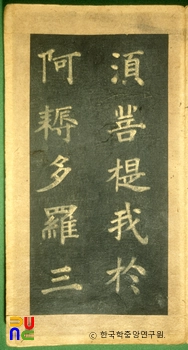 須菩提我於
阿耨多羅三
ⓒ 한국학중앙연구원